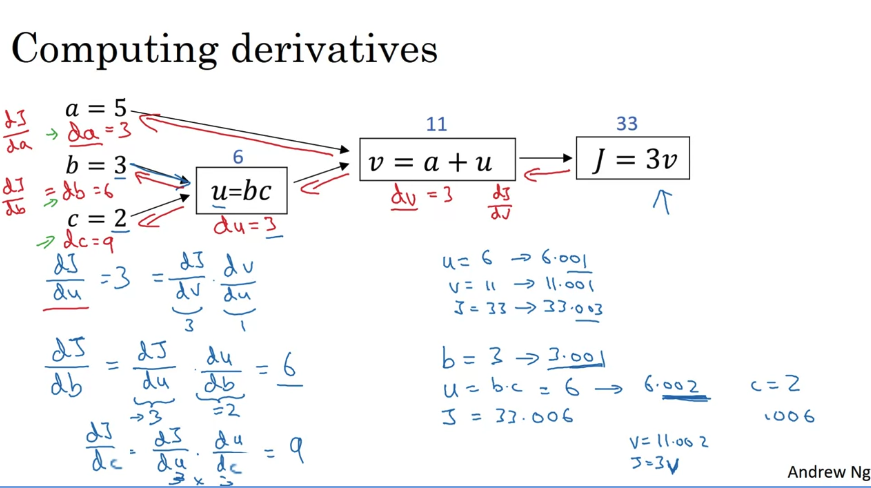 Computing derivatives
dJ/da
a = 5
→ da = 3
b = 3
dJ/db = db = 6
c = 2
→ dc = 9
6
u=bc
du = 3
11
v = a + u
dv = 3 dJ/dv
33
J = 3v
dJ/du = 3 = dJ/dv · dv/du
3 1
dJ/db = dJ/du · du/db = 6
→3 =2
dJ/dc = dJ/du · du/dc = 9
3 × 3
u = 6 → 6.001
v = 11 → 11.001
J = 33 → 33.003
b = 3 → 3.001
u = b·c = 6 → 6.002 c = 2
J = 33.006 .006
v = 11.002
J = 3v
Andrew Ng